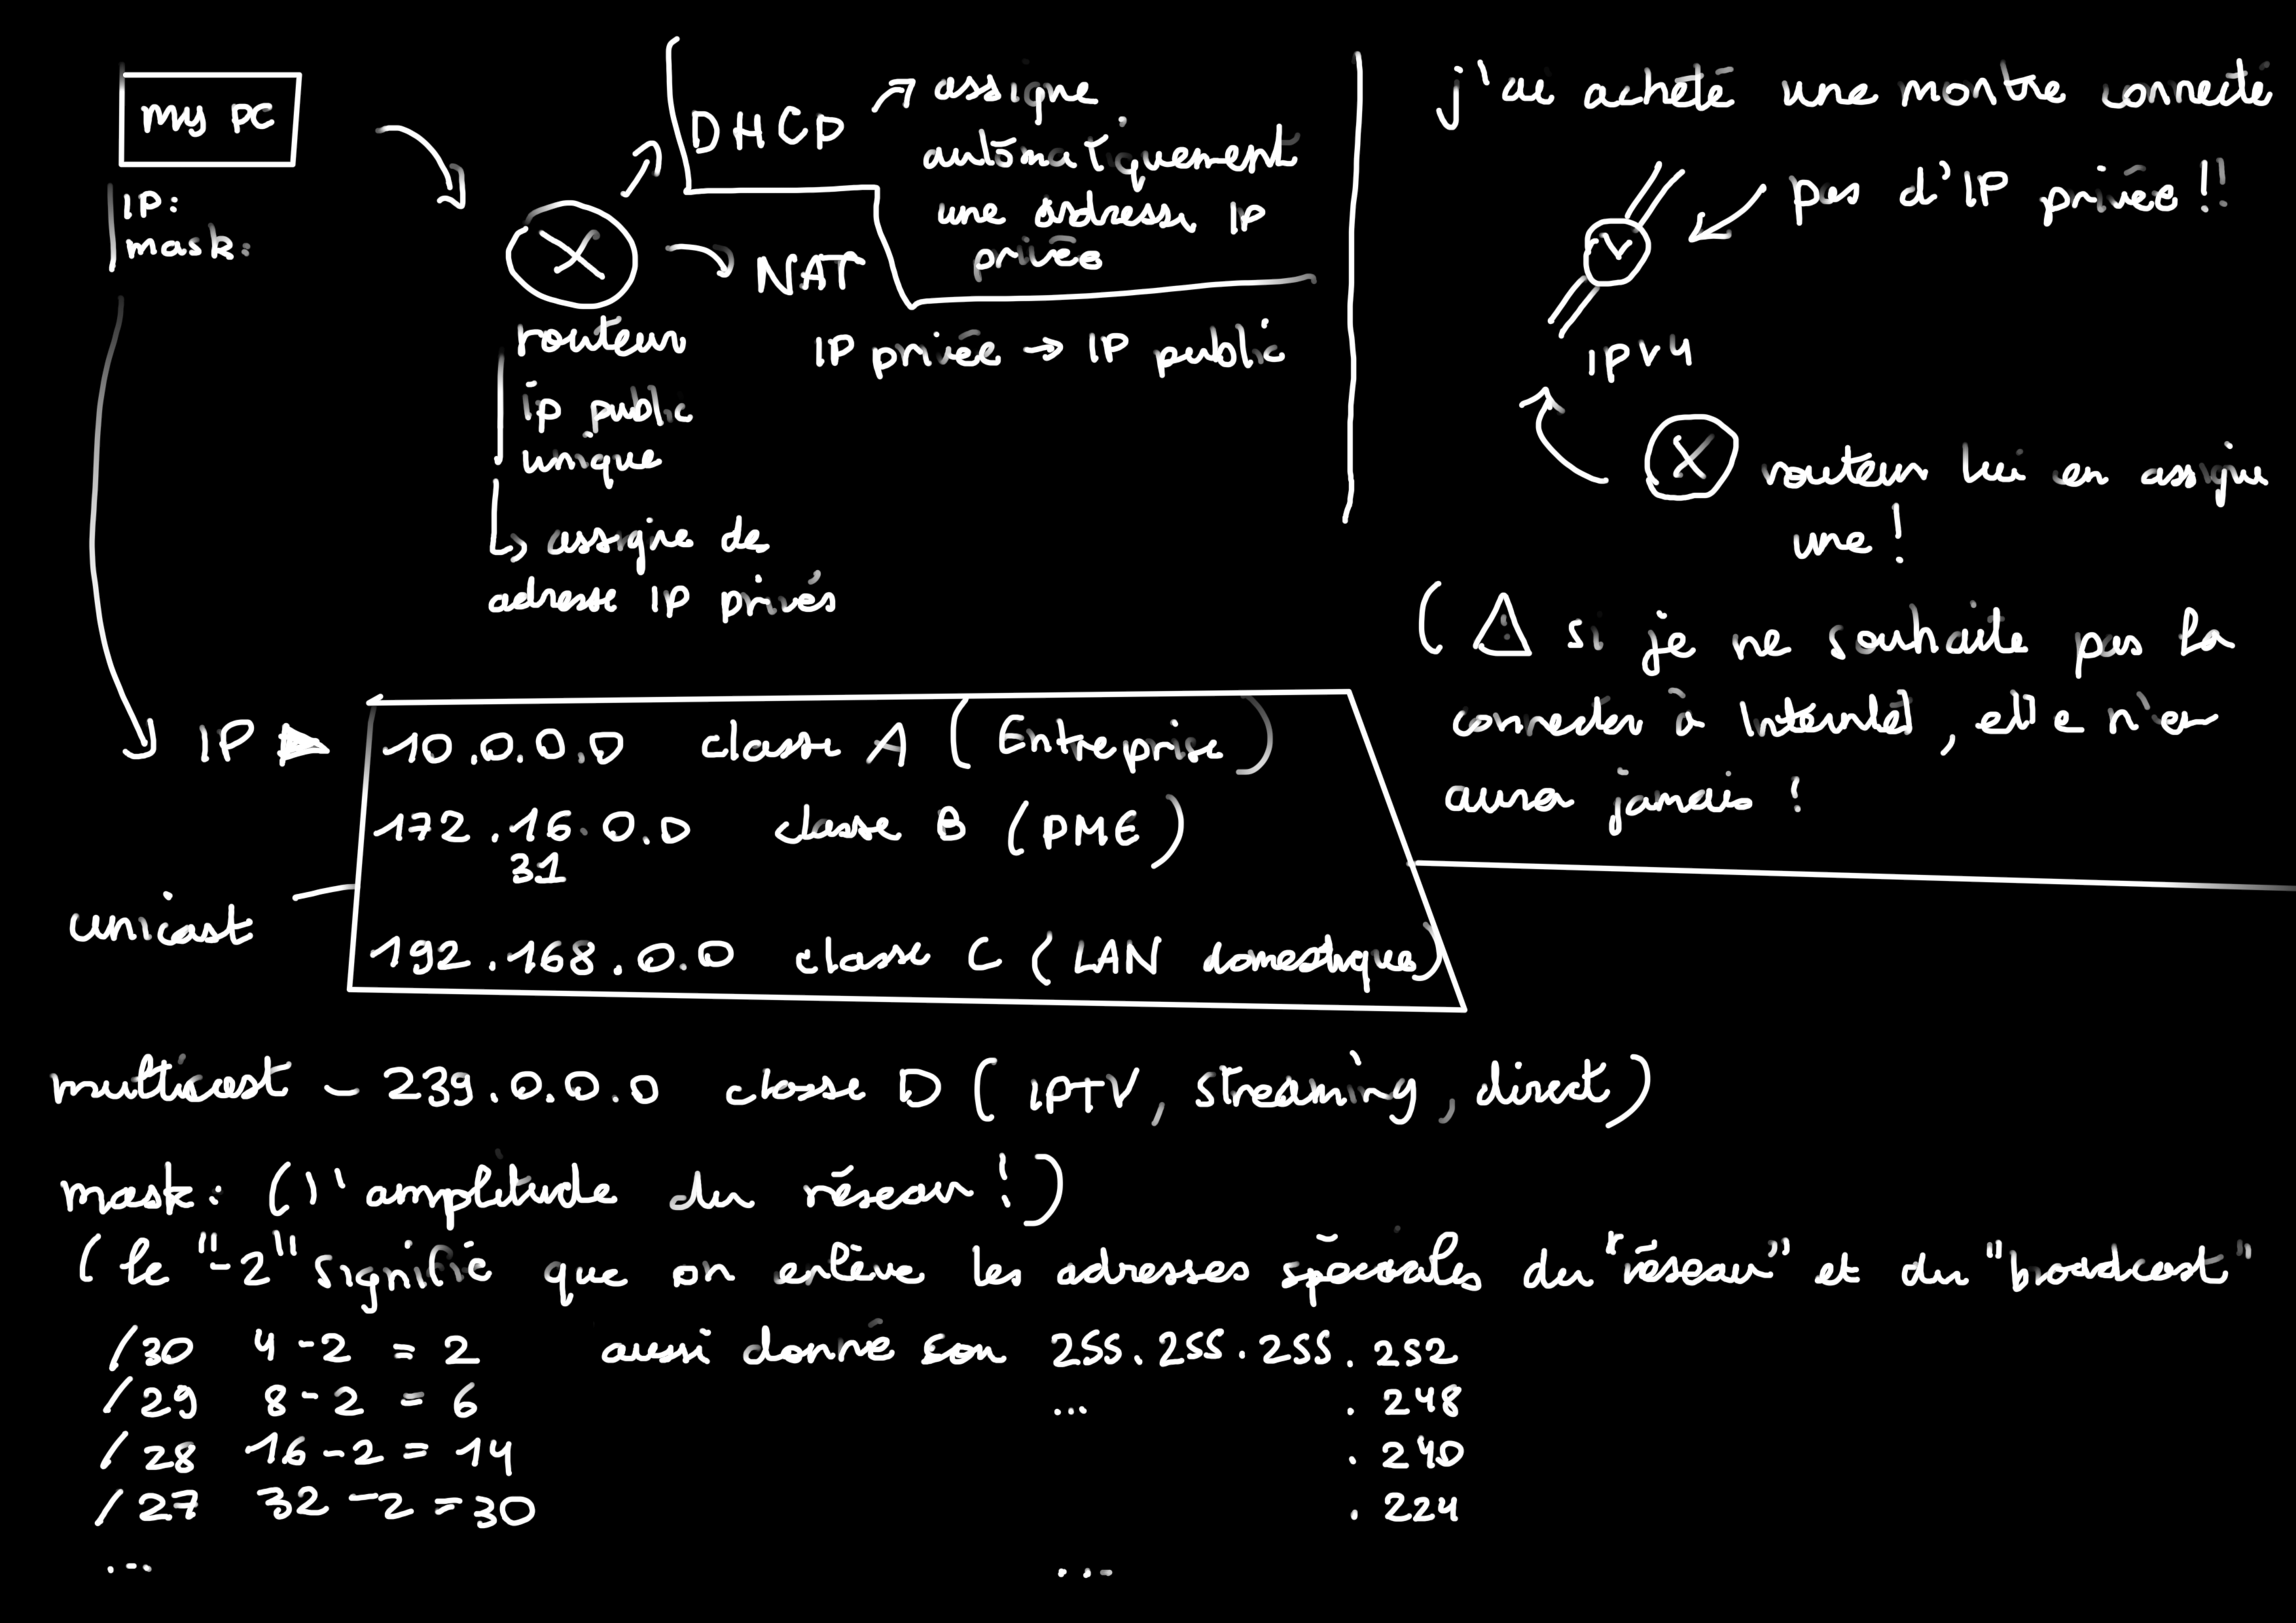 my PC
IP:
mask:
DHCP
assigne
automatiquement
une adresse IP
privée
NAT
IP privée → IP public
routeur
ip public
unique
↳ assigne de
adresse IP privés
j'ai acheté une montre connecté
pas d'IP privée !!
IPV4
routeur lui en assigne
une !
( ⚠ si je ne souhaite pas la
connecter à Internet, elle n'en
aura jamais !
IP
10.0.0.0 classe A (Entreprise)
172.16.0.0 classe B (PME)
31
192.168.0.0 classe C (LAN domestique)
unicast
multicast – 239.0.0.0 classe D (IPTV, streaming, direct)
mask: (l'amplitude du réseau !)
(le "-2" signifie que on enlève les adresses spéciales du "réseau" et du "broadcast"
/30 4-2 = 2 aussi donné son 255.255.255.252
/29 8-2 = 6 ... .248
/28 16-2 = 14 .240
/27 32-2 = 30 .224
... ...